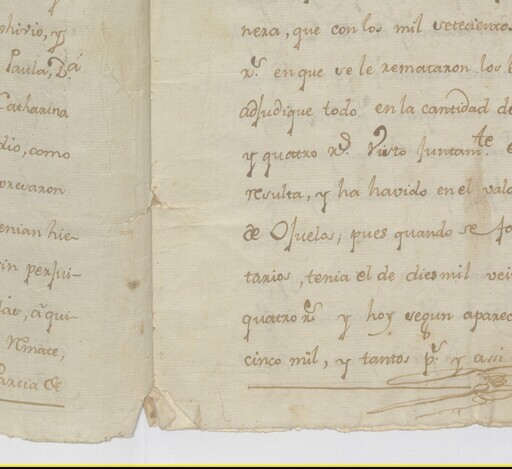 phirio, y
Paula, D.ª
Catharina
dio, como
prevaron
enian hie-
sin perjui-
das, a qui-
Rmate,
Garcia de
nera, que con los mil setecientos
r.s en que se le remataron los b
adjudique todo en la cantidad de
y quatro r.s Visto juntam.te e
resulta, y ha havido en el valo
de Ojuelos; pues quando se fo
tarios, tenia el de dies mil vei
quatro r.s y hoy segun aparec
cinco mil, y tantos p.r y assi